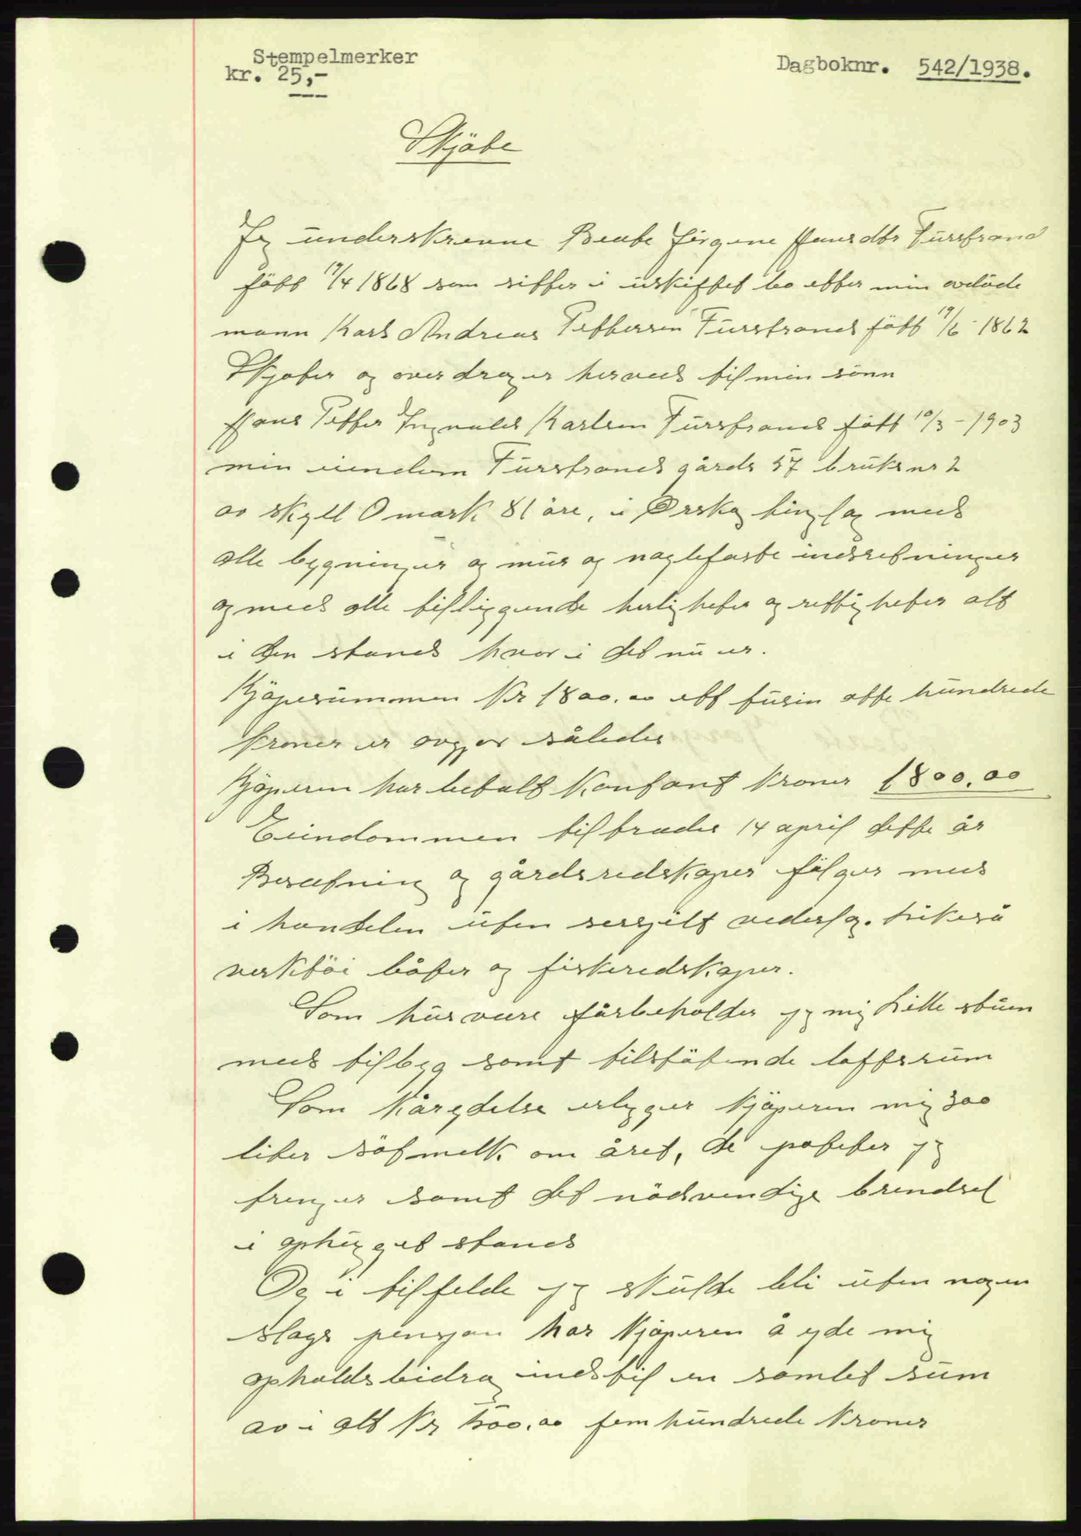 Stempelmerker
kr. 25,-
Dagboknr. 542/1938.
Skjöte
Jeg underskrevne Beate Jörgine Hansdtr Furstrand
född 17/4 1868 som sitter i uskiftet bo etter min avdöde
mann Karl Andreas Pettersen Furstrand född 19/6 - 1862
Skjöter og overdrager herved til min sönn
Hans Petter Ingvald Karlsen Furstrand född 10/3 - 1903
min eiendom Furstrand gårds 57 bruksnr 2
av skyld 0 mark 81 öre, i Ørskog tinglag med
alle bygninger og mur og naglefaste indretninger
og med alle tilliggende herligheter og rettigheter alt
i den stand hvor i det nu er.
Kjöpesummen Kr 1800.00 ett tusin otte hundrede
kroner er avgjor således
Kjöperen har betalt Kontant kroner 1800.00
Eiendommen tiltrædes 14 april dette år
Besetning og gårdsredskaper fölger med
i handelen uten serskilt vederlag. Likeså
verktöi båter og fiskeredskaper.
Som husvære forbeholder jeg mig Lille stuen
med tilbygg samt tilstötende loftsrum
Som Kårydelse erlegger Kjöperen mig 300
liter sötmelk om året, de poteter jeg
trenger samt det nödvendige brendsel
i ophugget stand
Og i tilfelde jeg skulde bli uten nogen
slags pensjon har Kjöperen å yde mig
opholdsbidrag indtil en samlet sum
av i alt Kr 500.00 fem hundrede kroner